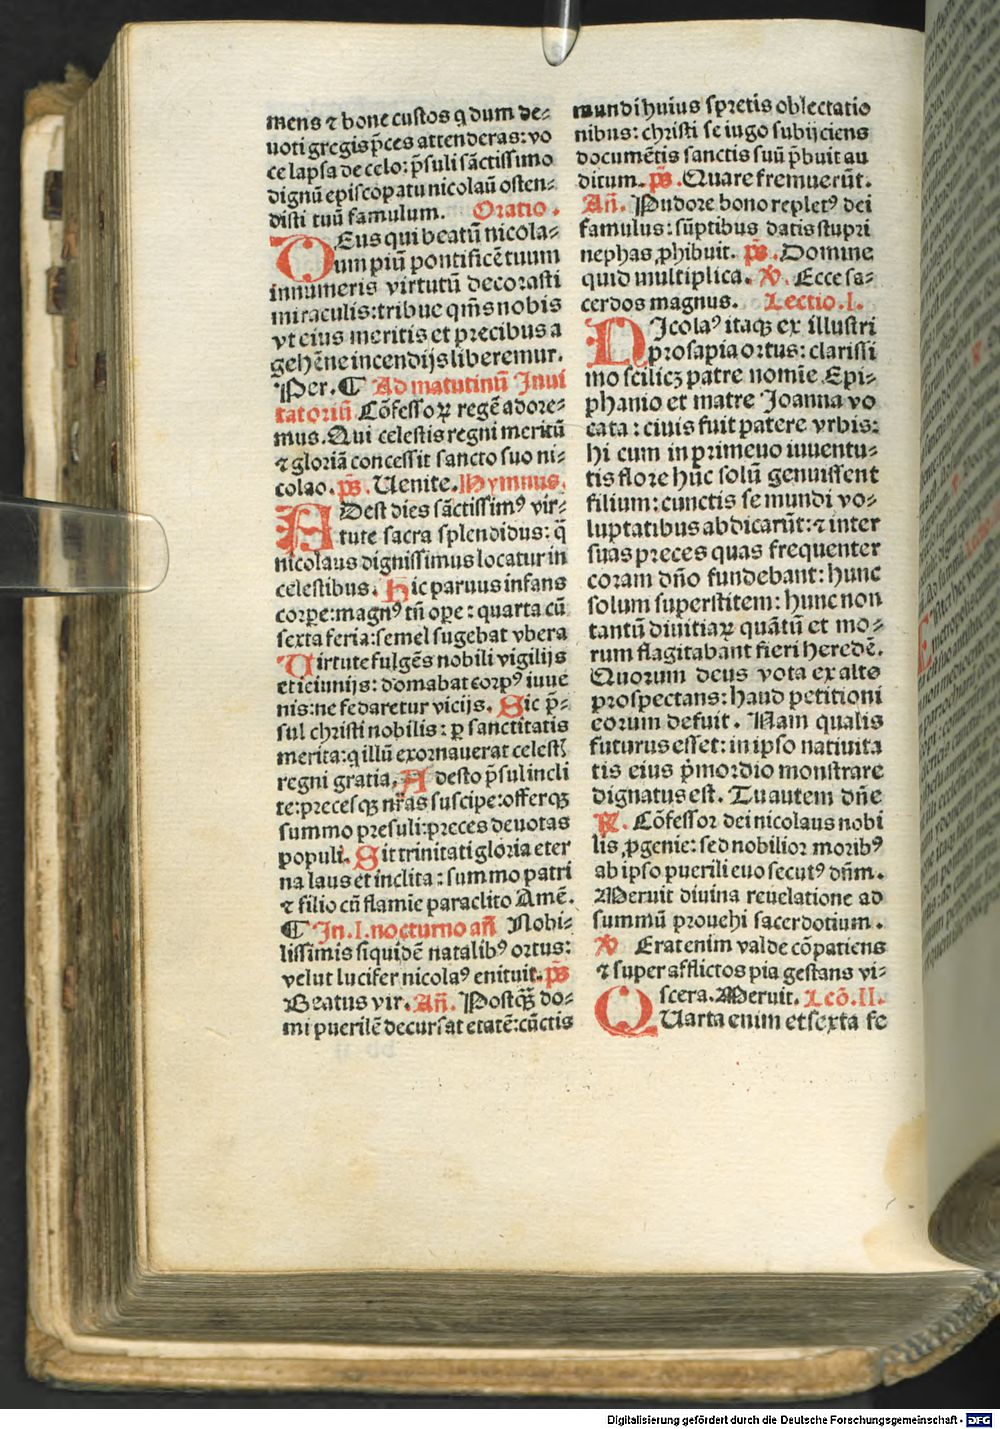 mens ⁊ bone custos q̇ dum de⸗
uoti gregis p̄ces attenderas: vo
ce lapsa de celo: p̄suli sāctissimo
dignū episcopatu nicolaū osten⸗
disti tuū famulum. Oratio.
DEus qui beatū nicola⸗
um piū pontificē tuum
innumeris virtutū decorasti
miraculis: tribue qm̄s nobis
vt eius meritis et precibus a
gehēne incendijs liberemur.
Per. ¶ Ad matutinū Inui
tatoriū Cōfessoꝝ regē adore⸗
mus. Qui celestis regni meritū
⁊ gloriā concessit sancto suo ni⸗
colao. p̄s. Uenite. Hymnus.
ADest dies sāctissimꝰ vir⸗
tute sacra splendidus: q̄
nicolaus dignissimus locatur in
celestibus. Hic paruus infans
corpe: magnꝰ tn̄ ope: quarta cū
sexta feria: semel sugebat vbera
Uirtute fulgēs nobili vigilijs
et ieiunijs: domabat corpꝰ iuue
nis: ne fedaretur vicijs. Sic p̄⸗
sul christi nobilis: ꝑ sanctitatis
merita: q̇ illū exornauerat celestꝭ
regni gratia, Adesto p̄sul incli
te: precesqꝫ nr̄as suscipe: offerqꝫ
summo presuli: preces deuotas
populi. Sit trinitati gloria eter
na laus et inclita: summo patri
⁊ filio cū flamie paraclito Amē.
¶ In. I. nocturno an̄ Nobi⸗
lissimis siquidē natalibꝰ ortus:
velut lucifer nicolaꝰ enituit. p̄s
Beatus vir. An̄. Postqꝫ̄ do⸗
mi puerilē decursat etatē: cūctis
mundi huius spretis oblectatio
nibus: christi se iugo subijciens
documētis sanctis suū p̄buit au
ditum. p̄s. Quare fremuerūt.
An̄. Pudore bono repletꝰ dei
famulus: sūptibus datis stupri
nephas ꝓhibuit. p̄s. Domine
quid multiplica. ℣. Ecce sa⸗
cerdos magnus. Lectio. I.
NIcolaꝰ itaqꝫ ex illustri
prosapia ortus: clarissi
mo scilicꝫ patre nomīe Epi⸗
phanio et matre Joanna vo
cata: ciuis fuit patere vrbis:
hi cum in primeuo iuuentu⸗
tis flore hūc solū genuissent
filium: cunctis se mundi vo⸗
luptatibus abdicarūt: ⁊ inter
suas preces quas frequenter
coram dn̄o fundebant: hunc
solum superstitem: hunc non
tantū diuitiaꝝ quātū et mo⸗
rum flagitabant fieri heredē.
Quorum deus vota ex alto
prospectans: haud petitioni
eorum defuit. Nam qualis
futurus esset: in ipso natiuita
tis eius p̄mordio monstrare
dignatus est. Tu autem dn̄e
℟. Cōfessor dei nicolaus nobi
lis ꝓgenie: sed nobilior moribꝰ
ab ipso puerili euo secutꝰ dn̄m.
Meruit diuina reuelatione ad
summū prouehi sacerdotium.
℣ Erat enim valde cōpatiens
⁊ super afflictos pia gestans vi⸗
scera. Meruit. Lcō. II.
QUarta enim et sexta fe
Digitalisierung gefördert durch die Deutsche Forschungsgemeinschaft - DFG